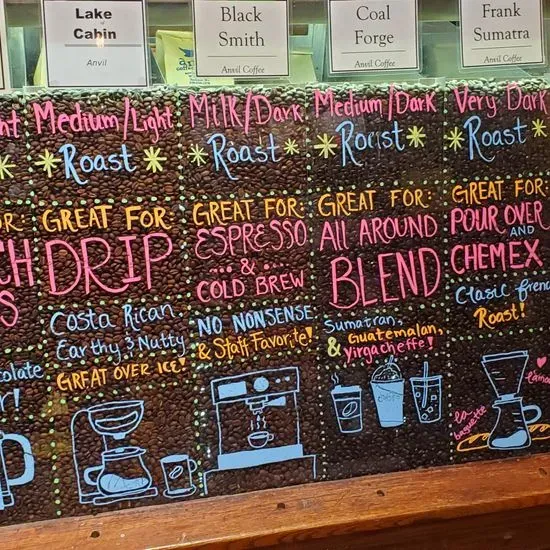 Lake
of
Cabin
Anvil
Black
Smith
Anvil Coffee
Coal
Forge
Anvil Coffee
Frank
Sumatra
Anvil Coffee
Medium/Light
Roast
GREAT FOR:
DRIP
Costa Rican,
Earthy & Nutty
GREAT OVER ICE!
Milk/Dark
Roast
GREAT FOR:
ESPRESSO
&
COLD BREW
NO NONSENSE
& Staff Favorite!
Medium/Dark
Roast
GREAT FOR:
ALL AROUND
BLEND
Sumatran,
Guatemalan,
& Yirgacheffe!
Very Dark
Roast
GREAT FOR:
POUR OVER
AND
CHEMEX
Clasic frenc
Roast!
la
baguette
l'amo